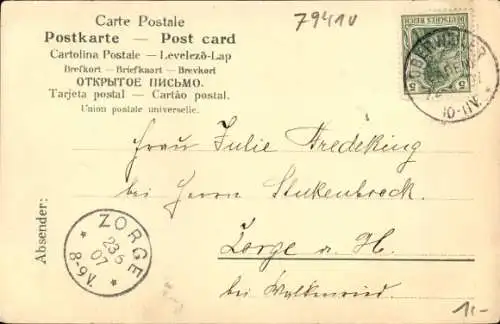 Carte Postale
7941V
Postkarte — Post card
Cartolina Postale — Levelező-Lap
Brefkort — Briefkaart — Brevkort
ОТКРЫТОЕ ПИСЬМО.
Tarjeta postal — Cartão postal.
Union postale universelle.
DEUTSCHES REICH
5 5
10-11V.
Frau Julie Fredeking
bei Herrn Stukenbrock
Zorge a. H.
bei Walkenried.
Absender:
ZORGE
23 5
07
8-9V.
1,-